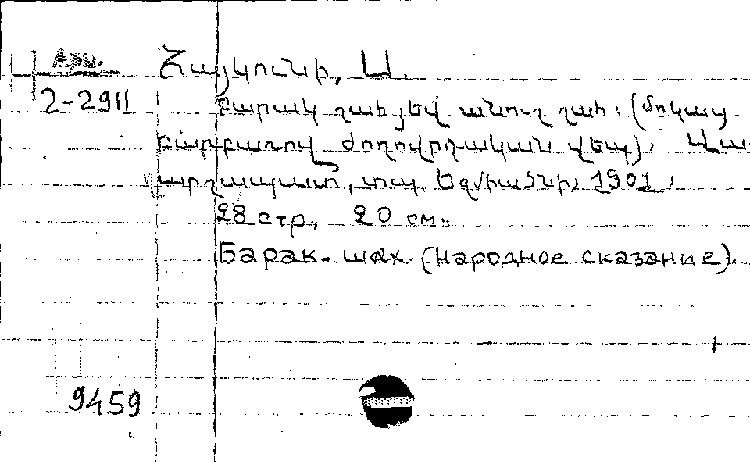 Арм.
2-2911
Հայկունի, Ս.
Բարակ շահ եվ անուշ շահ։ (մոկաց
բարբառով ժողովրդական վեպ)։ Վա-
ղարշապատ, տպ. Էջմիածնի, 1901։
28 стр., 20 см.
Барак. шах. (народное сказание).
9459